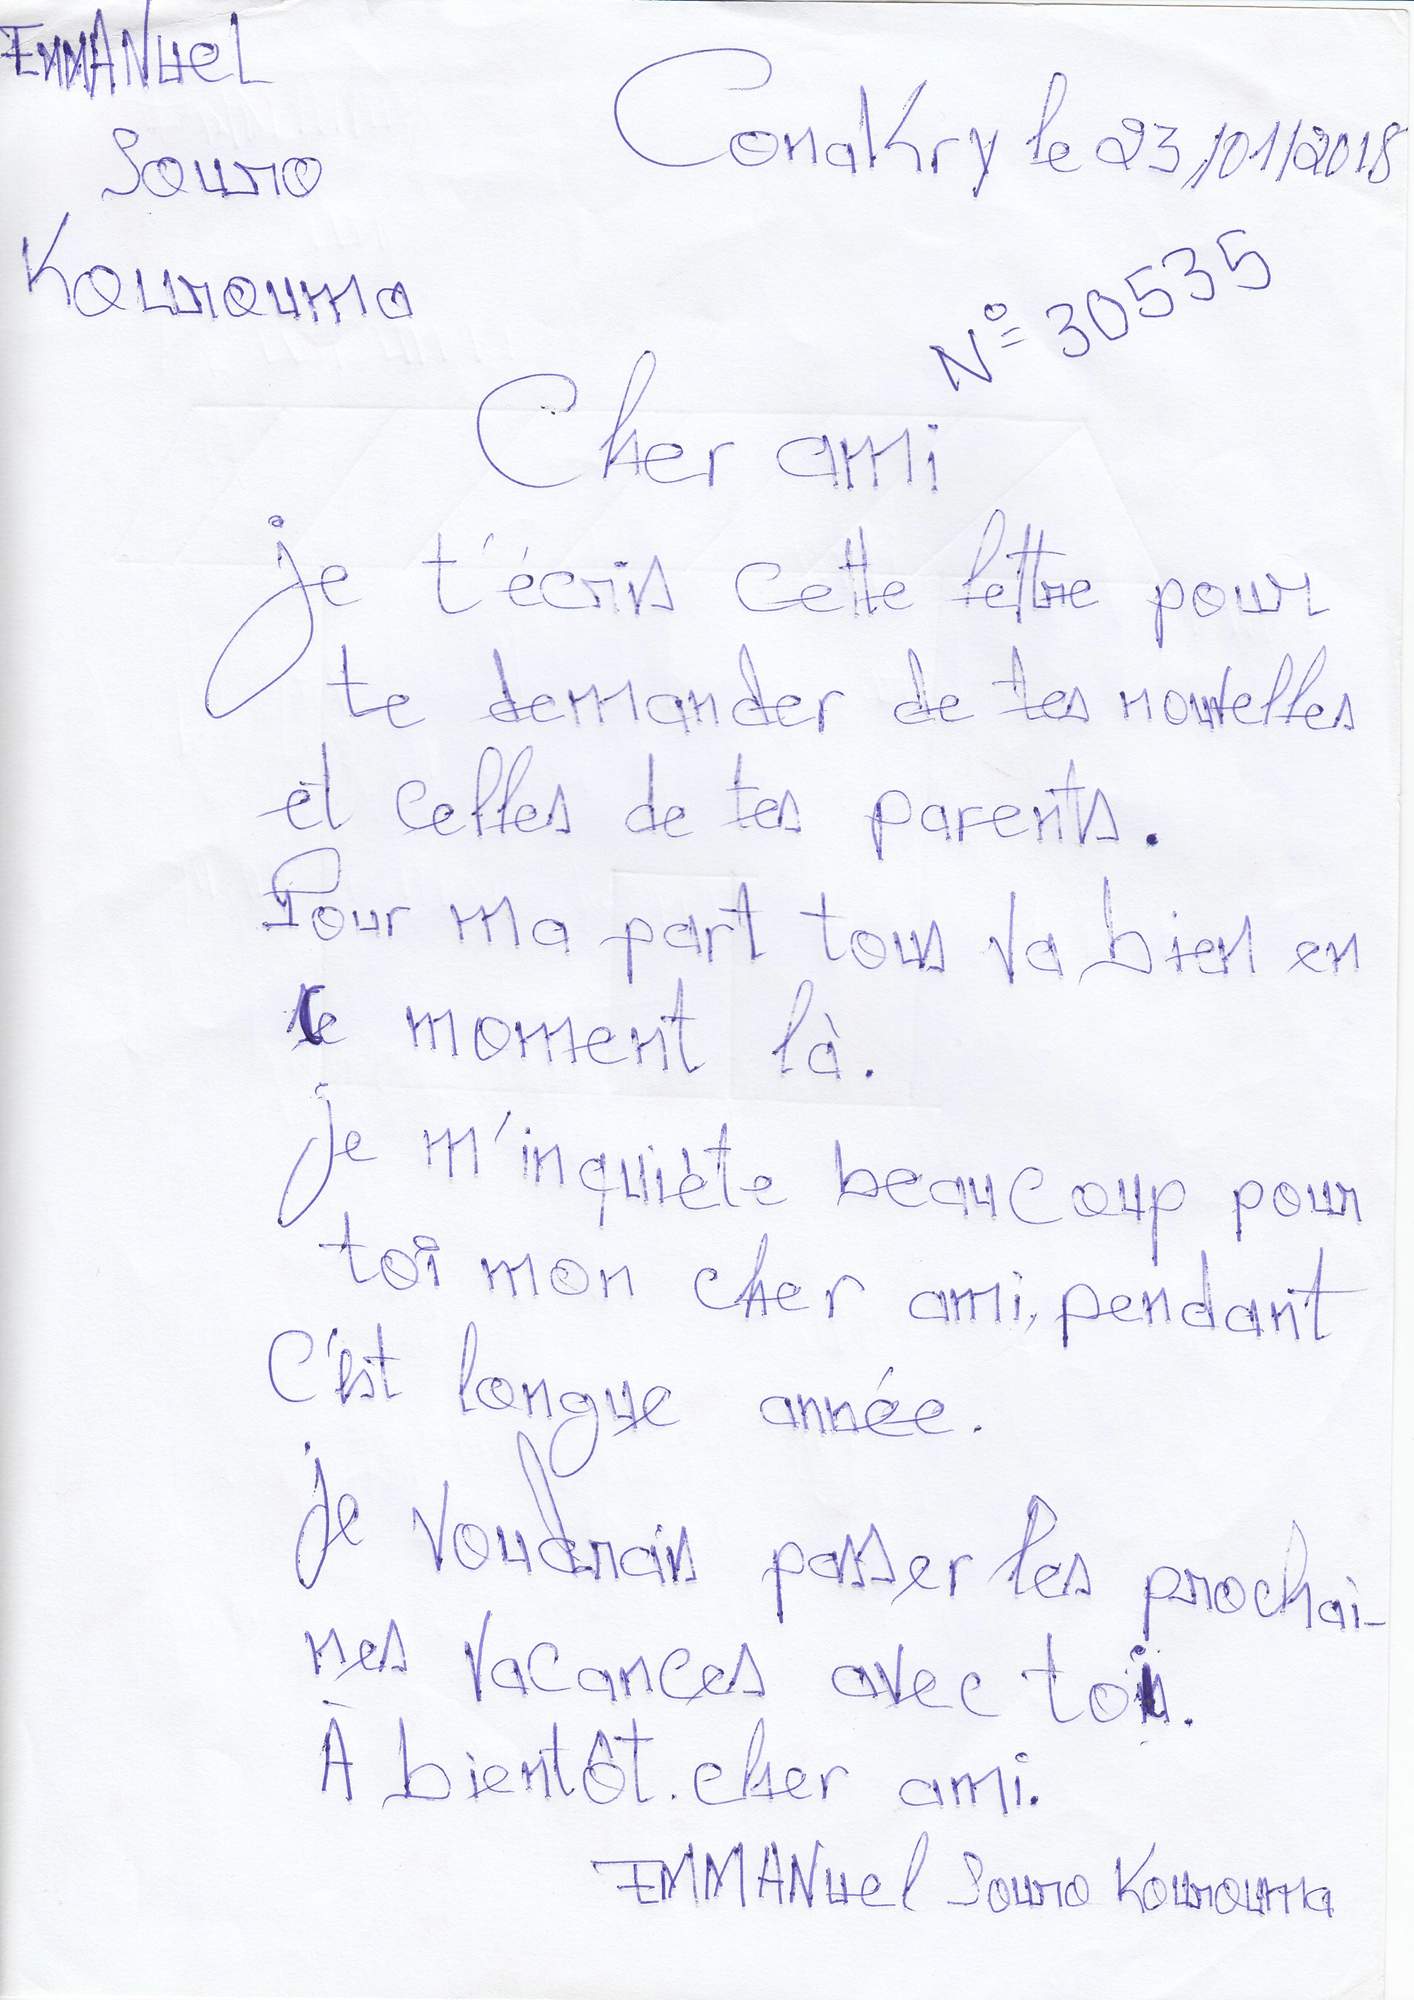 EMMANUEL
Souro
Kourouma
Conakry le 23/01/2018
N° 30535
Cher ami
je t'écris cette lettre pour
te demander de tes nouvelles
et celles de tes parents.
Pour ma part tous va bien en
ce moment là.
je m'inquiète beaucoup pour
toi mon cher ami, pendant
c'est longue année.
je voudrais passer les prochai-
nes vacances avec toi.
À bientôt. cher ami.
EMMANUEL Souro Kourouma